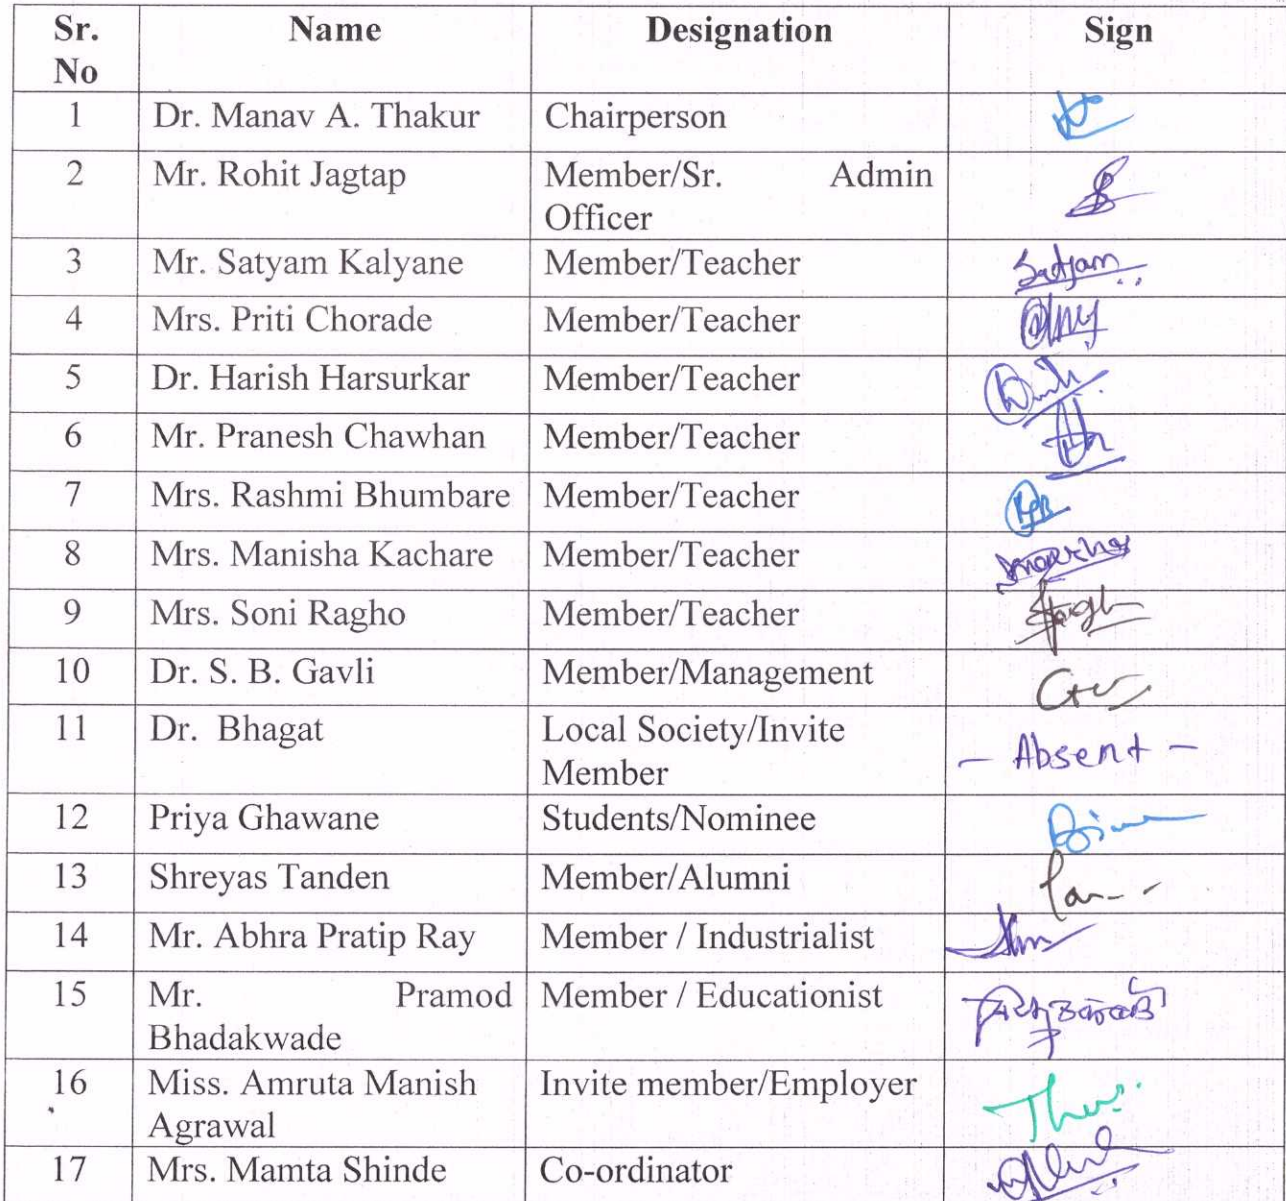 Sr. No Name Designation Sign
1 Dr. Manav A. Thakur Chairperson
2 Mr. Rohit Jagtap Member/Sr. Admin
Officer
3 Mr. Satyam Kalyane Member/Teacher Satyam
4 Mrs. Priti Chorade Member/Teacher
5 Dr. Harish Harsurkar Member/Teacher
6 Mr. Pranesh Chawhan Member/Teacher
7 Mrs. Rashmi Bhumbare Member/Teacher
8 Mrs. Manisha Kachare Member/Teacher
9 Mrs. Soni Ragho Member/Teacher
10 Dr. S. B. Gavli Member/Management
11 Dr. Bhagat Local Society/Invite - Absent -
Member
12 Priya Ghawane Students/Nominee
13 Shreyas Tanden Member/Alumni
14 Mr. Abhra Pratip Ray Member / Industrialist
15 Mr. Pramod Member / Educationist
Bhadakwade
16 Miss. Amruta Manish Invite member/Employer
Agrawal
17 Mrs. Mamta Shinde Co-ordinator